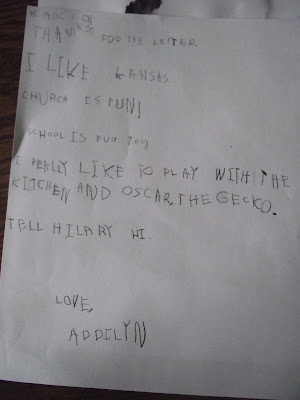 THANKS FOR THE LETTER.
I LIKE KANSAS
CHURCH IS FUN!
SCHOOL IS FUN TOO
I REALLY LIKE TO PLAY WITH THE
KITCHEN AND OSCAR THE GECKO.
TELL HILARY HI.
LOVE,
ADDILYN